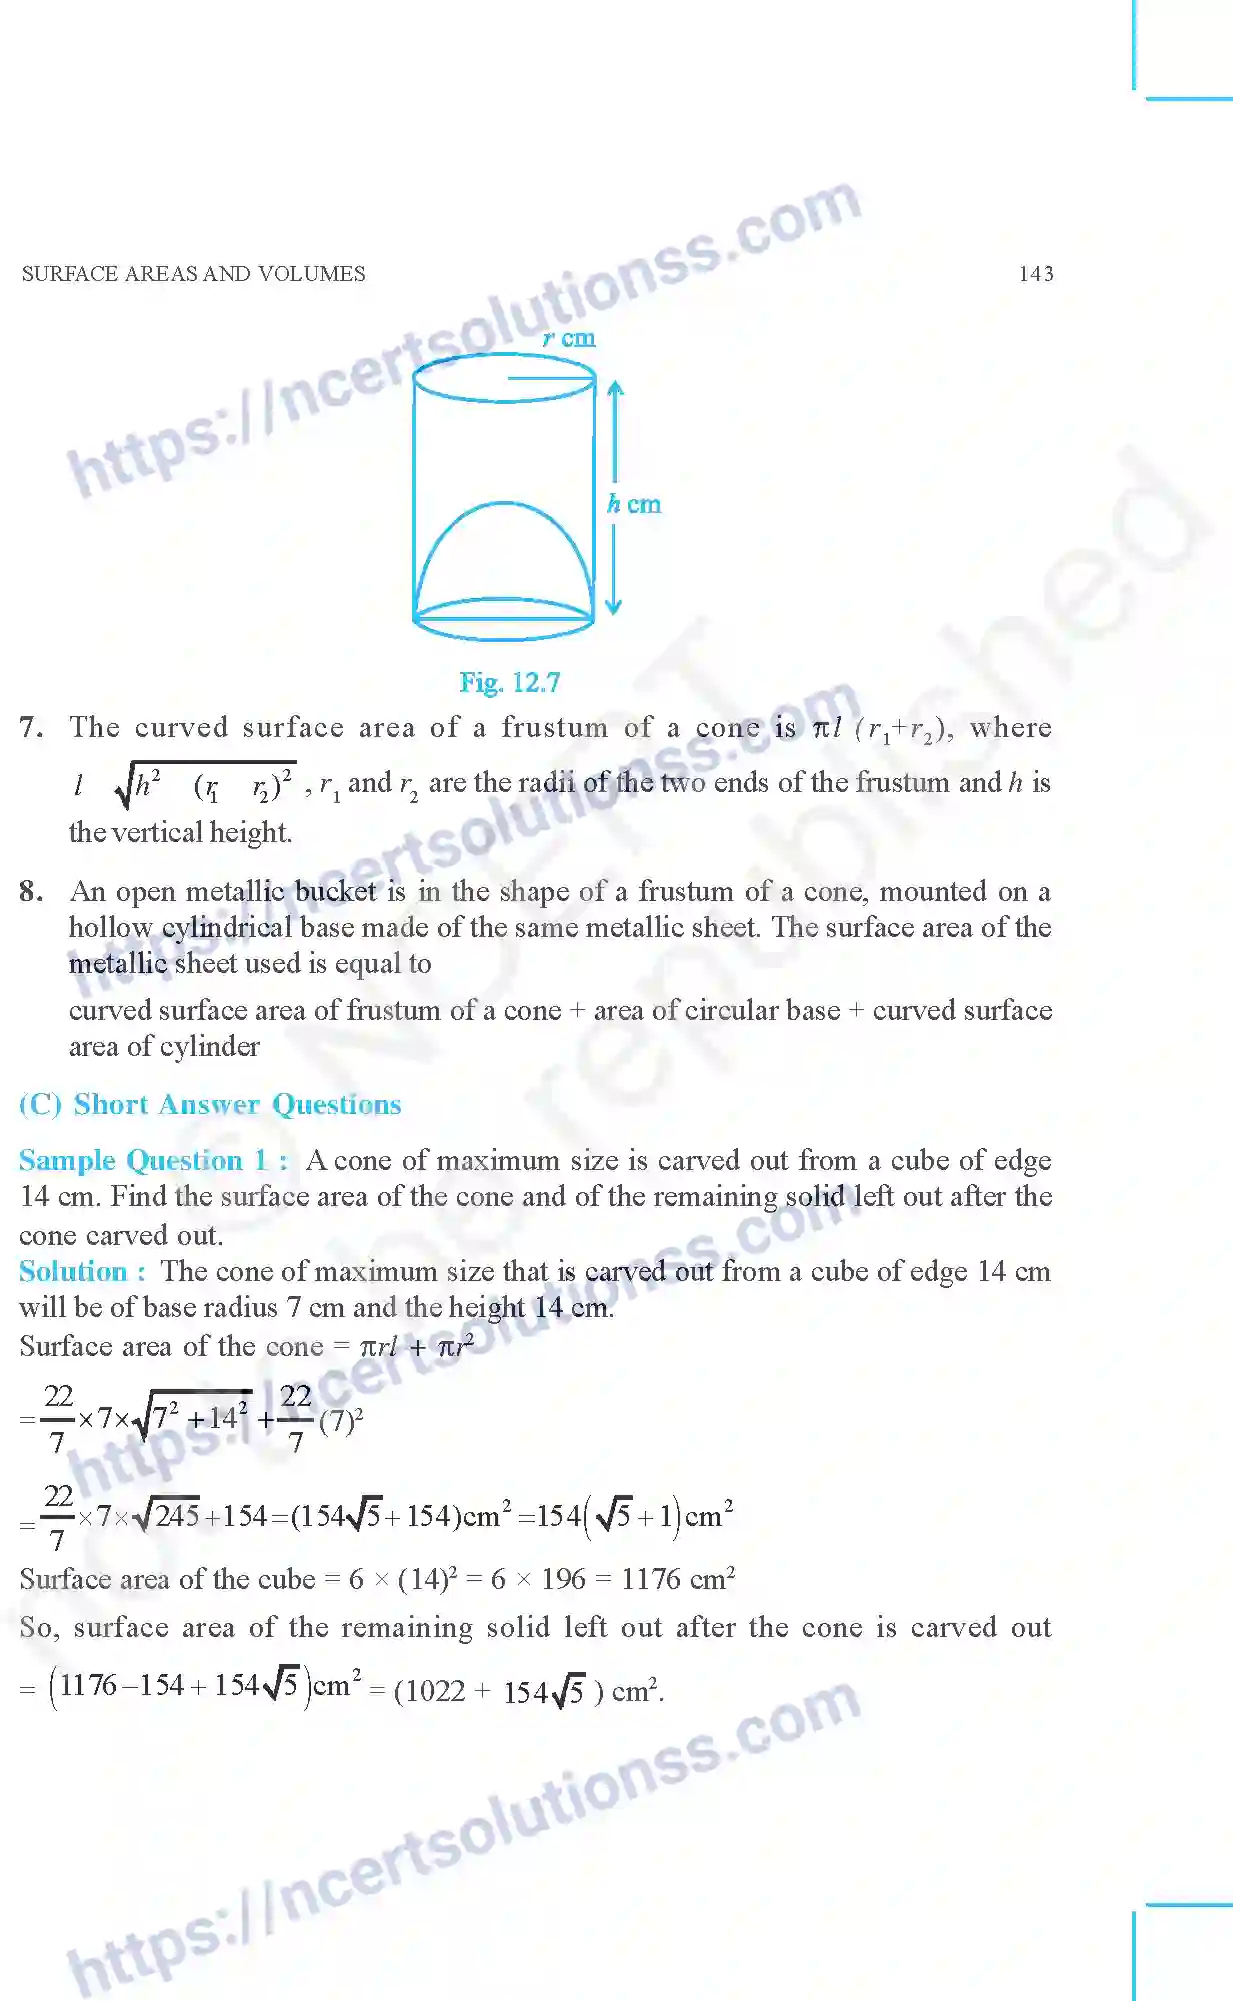 SURFACE AREAS AND VOLUMES 143
r cm
h cm
Fig. 12.7
7. The curved surface area of a frustum of a cone is πl (r₁+r₂), where
l √h² (r₁ r₂)² , r₁ and r₂ are the radii of the two ends of the frustum and h is
the vertical height.
8. An open metallic bucket is in the shape of a frustum of a cone, mounted on a
hollow cylindrical base made of the same metallic sheet. The surface area of the
metallic sheet used is equal to
curved surface area of frustum of a cone + area of circular base + curved surface
area of cylinder
(C) Short Answer Questions
Sample Question 1 : A cone of maximum size is carved out from a cube of edge
14 cm. Find the surface area of the cone and of the remaining solid left out after the
cone carved out.
Solution : The cone of maximum size that is carved out from a cube of edge 14 cm
will be of base radius 7 cm and the height 14 cm.
Surface area of the cone = πrl + πr²
= 22/7 ×7×√7² +14² + 22/7 (7)²
= 22/7 ×7×√245 +154 =(154√5 + 154)cm² =154(√5 + 1)cm²
Surface area of the cube = 6 × (14)² = 6 × 196 = 1176 cm²
So, surface area of the remaining solid left out after the cone is carved out
= (1176 – 154 + 154√5)cm² = (1022 + 154√5 ) cm².
https://ncertsolutionss.com
https://ncertsolutionss.com
https://ncertsolutionss.com
https://ncertsolutionss.com
© NCERT
not to be republished